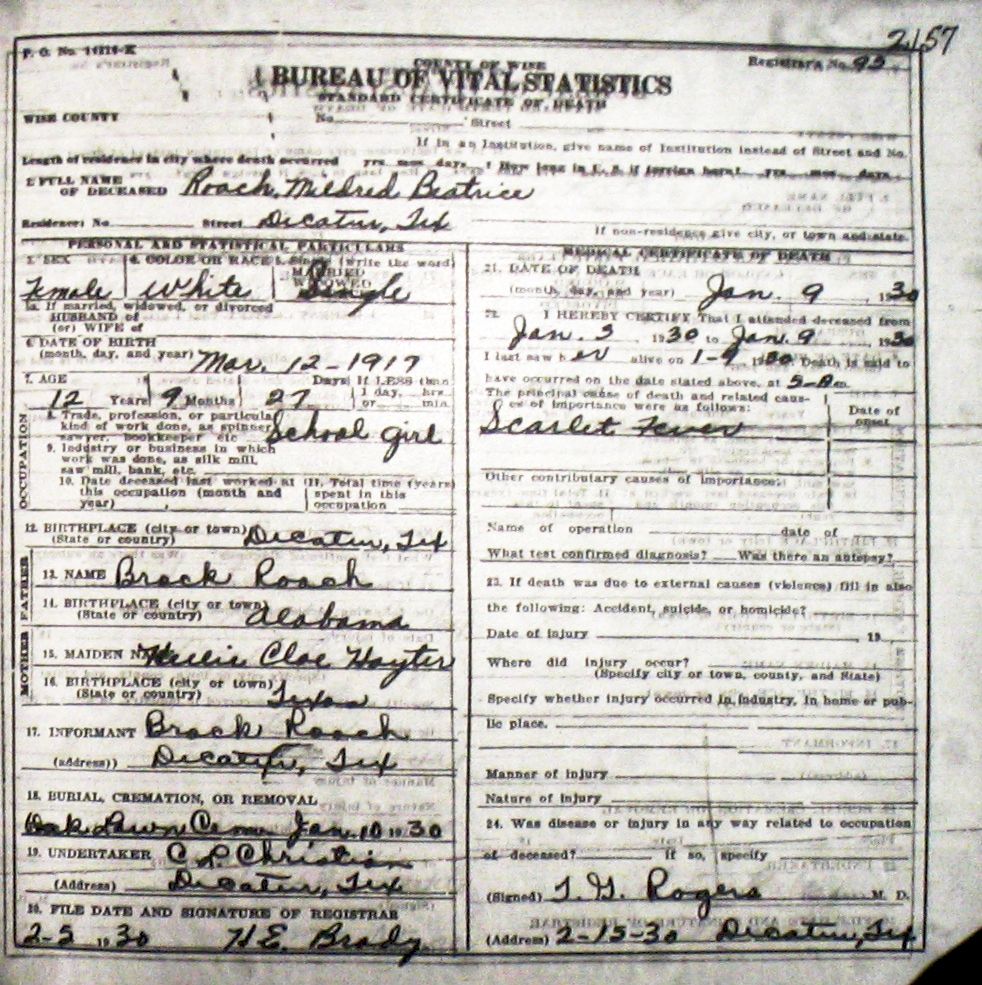 2157
P. O. No. 14226-K
COUNTY OF WISE
Registrar's No. 95
BUREAU OF VITAL STATISTICS
STANDARD CERTIFICATE OF DEATH
WISE COUNTY
No. Street
If in an Institution, give name of Institution instead of Street and No.
Length of residence in city where death occurred yrs. mos. days. How long in U. S. if foreign born? yrs. mos. days.
2. FULL NAME OF DECEASED Roach, Mildred Beatrice
Residence: No. Street Decatur, Tex
If non-residence give city, or town and state.
PERSONAL AND STATISTICAL PARTICULARS
3. SEX Female
4. COLOR OR RACE White
5. Single MARRIED WIDOWED (write the word) Single
5a. If married, widowed, or divorced
HUSBAND of
(or) WIFE of
6. DATE OF BIRTH
(month, day, and year) Mar. 12-1917
7. AGE
12 Years 9 Months 27 Days If LESS than 1 day, hrs. or min.
OCCUPATION
8. Trade, profession, or particular
kind of work done, as spinner,
sawyer, bookkeeper etc School girl
9. Industry or business in which
work was done, as silk mill,
saw mill, bank, etc.
10. Date deceased last worked at
this occupation (month and
year)
11. Total time (years)
spent in this
occupation
12. BIRTHPLACE (city or town)
(State or country) Decatur, Tex
FATHER
13. NAME Brock Roach
14. BIRTHPLACE (city or town)
(State or country) Alabama
MOTHER
15. MAIDEN NAME Cloe Hayter
16. BIRTHPLACE (city or town)
(State or country) Texas
17. INFORMANT Brock Roach
(address)) Decatur, Tex
18. BURIAL, CREMATION, OR REMOVAL
Oak Lawn Cem Jan. 10 1930
19. UNDERTAKER C L Christian
(Address) Decatur, Tex
20. FILE DATE AND SIGNATURE OF REGISTRAR
2-5 1930 H E. Brady
MEDICAL CERTIFICATE OF DEATH
21. DATE OF DEATH
(month, day, and year) Jan. 9 1930
22. I HEREBY CERTIFY That I attended deceased from
Jan. 3 1930 to Jan. 9 1930
I last saw her alive on 1-9 1930 Death is said to
have occurred on the date stated above, at 5-a m.
The principal cause of death and related caus-
es of importance were as follows:
Date of onset
Scarlet Fever
Other contributary causes of importance:
Name of operation date of
What test confirmed diagnosis? Was there an autopsy?
23. If death was due to external causes (violence) fill in also
the following: Accident, suicide, or homicide?
Date of injury 19
Where did injury occur?
(Specify city or town, county, and State)
Specify whether injury occurred in industry, in home or pub-
lic place.
Manner of injury
Nature of injury
24. Was disease or injury in any way related to occupation
of deceased? If so, specify
(Signed) T. G. Rogers M. D.
(Address) 2-15-30 Decatur, Tex